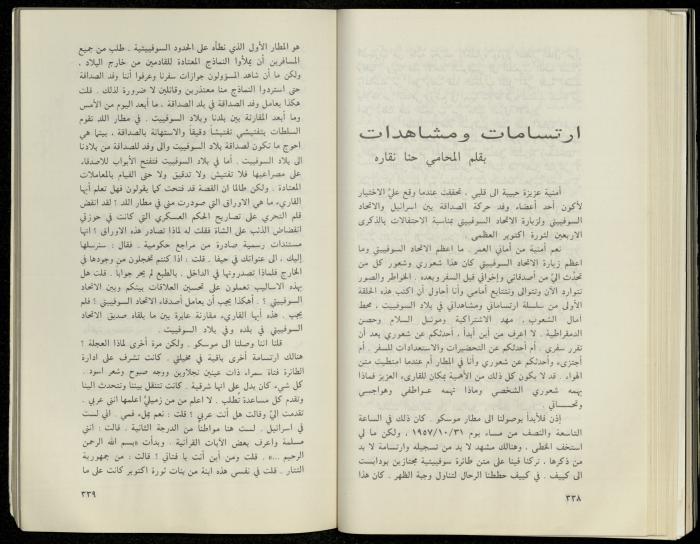 ارتسامات ومشاهدات
بقلم المحامي حنا نقاره
أمنية عزيزة حبيبة الى قلبي . تحققت عندما وقع عليّ الاختيار
لأكون أحد أعضاء وفد حركة الصداقة بين اسرائيل والاتحاد
السوفييتي ولزيارة الاتحاد السوفييتي بمناسبة الاحتفالات بالذكرى
الاربعين لثورة اكتوبر العظمى .
نعم أمنية من أماني العمر . ما اعظم الاتحاد السوفييتي وما
اعظم زيارة الاتحاد السوفييتي كان هذا شعوري وشعور كل من
تحدّث اليّ من أصدقائي وإخواني قبل السفر وبعده . الخواطر والصور
تتوارد الآن وتتوالى وتتتابع أمامي وأنا أحاول أن اكتب هذه الحلقة
الأولى من سلسلة ارتساماتي ومشاهداتي في بلاد السوفييت ، محط
امال الشعوب ، مهد الاشتراكية وموئل السلام وحصن
الدمقراطية . لا اعرف من أين أبدأ ، أحدثكم عن شعوري بعد أن
تقرر سفري . أم أحدثكم عن التحضيرات والاستعدادات للسفر . أم
أجتزىء وأحدثكم عن شعوري وأنا في المطار أم عندما امتطيت متن
الهواء . قد لا يكون كل ذلك من الأهمية بمكان للقارىء العزيز فماذا
يهمه شعوري الشخصي وماذا تهمه عواطفي وهواجسي
إذن فلأبدأ بوصولنا الى مطار موسكو . كان ذلك في الساعة
التاسعة والنصف من مساء يوم ١٩٥٧/١٠/٣١ ، ولكن ما لي
استخف الخطى ، وهنالك مشهد لا بد من تسجيله وارتسامة لا بد
من ذكرها ، تركنا فينا على متن طائرة سوفييتية مجتازين بودابست
الى كييف . في كييف حططنا الرحال لتناول وجبة الظهر . كان هذا
٣٣٨
هو المطار الأول الذي نطأه على الحدود السوفييتية . طلب من جميع
المسافرين أن يملأوا النماذج المعتادة للقادمين من خارج البلاد ،
ولكن ما أن شاهد المسؤولون جوازات سفرنا وعرفوا أننا وفد الصداقة
حتى استردوا النماذج منا معتذرين وقائلين لا ضرورة لذلك . قلت
هكذا يعامل وفد الصداقة في بلد الصداقة ، ما أبعد اليوم من الأمس
وما أبعد المقارنة بين بلدنا وبلاد السوفييت . في مطار اللد تقوم
السلطات بتفتيشي تفتيشاً دقيقاً والاستهانة بالصداقة ، بينما هي
احوج ما تكون لصداقة بلاد السوفييت والى وفد للصداقة من بلادنا
الى بلاد السوفييت . أما في بلاد السوفييت فتفتح الأبواب للاصدقاء
على مصراعيها فلا تفتيش ولا تدقيق ولا حتى القيام بالمعاملات
المعتادة . ولكن طالما ان القصة قد فتحت كما يقولون فهل تعلم أيها
القاريء ما هي الاوراق التي صودرت مني في مطار اللد ؟ لقد انفض
قلم التحري على تصاريح الحكم العسكري التي كانت في حوزتي
انقضاض الذئب على الشاة فقلت له لماذا تصادر هذه الاوراق ؟ انها
مستندات رسمية صادرة من مراجع حكومية . فقال : سنرسلها
إليك ، الى عنوانك في حيفا . قلت : اذا كنتم تخجلون من وجودها في
الخارج فلماذا تصدرونها في الداخل . بالطبع لم يحر جوابا . قلت هل
بهذه الاساليب تعملون على تحسين العلاقات بينكم وبين الاتحاد
السوفييتي ؟ . أهكذا يجب أن يعامل أصدقاء الاتحاد السوفييتي ؟ فلم
يجب . هذه أيها القاريء مقارنة عابرة بين ما يلقاه صديق الاتحاد
السوفييتي في بلده وفي بلاد السوفييت .
قلنا اننا وصلنا الى موسكو . ولكن مرة أخرى لماذا العجلة ؟
هنالك ارتسامة أخرى باقية في مخيلتي . كانت تشرف على ادارة
الطائرة فتاة سمراء ذات عينين نجلاوين ووجه صبوح وشعر اسود .
كل شيء كان يدل على انها شرقية . كانت تتنقل بيننا وتتحدث الينا
وتقدم كل مساعدة تطلب . لا اعلم من من زميليّ اعلمها انني عربي .
تقدمت اليّ وقالت هل أنت عربي ؟ قلت : نعم بملء فمي . اني لست
في اسرائيل . لست هنا مواطناً من الدرجة الثانية . قالت : انني
مسلمة واعرف بعض الآيات القرآنية . وبدأت «بسم الله الرحمن
الرحيم ...» . قلت ومن أين أنت يا فتاتي ؟ قالت : من جمهورية
التتار . قلت في نفسي هذه ابنة من بنات ثورة اكتوبر كانت على ما
٣٣٩